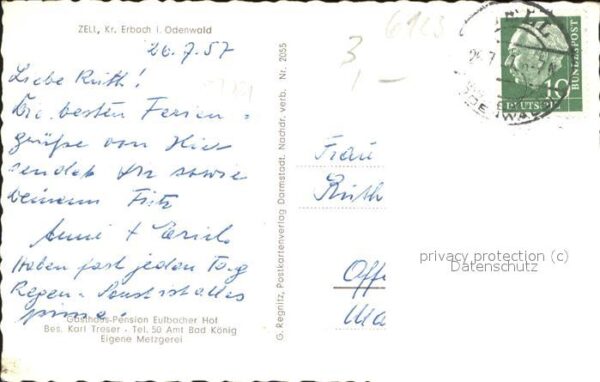 ZELL, Kr. Erbach i. Odenwald
26.7.57
Liebe Ruth!
Die besten Ferien-
grüße von Hier
sendet Dir sowie
Deinem Fritz
Anni + Erich
Haben fast jeden Tag
Regen. Sonst ist alles
prima.
Gasthaus-Pension Eulbacher Hof
Bes. Karl Treser - Tel. 50 Amt Bad König
Eigene Metzgerei
G. Regnitz, Postkartenverlag Darmstadt. Nachdr. verb. Nr. 2055
3,-
Frau
Ruth
Offe
Ma
privacy protection (c)
Datenschutz
10
DEUTSCHE
BUNDESPOST